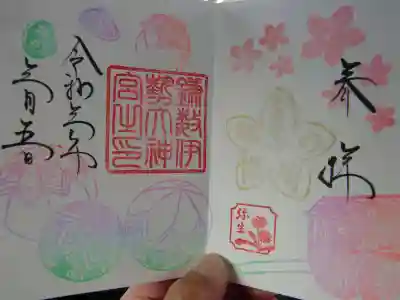 奉拝
弥生
鎌數伊
勢大神
宮之印
令和六年
三月五日